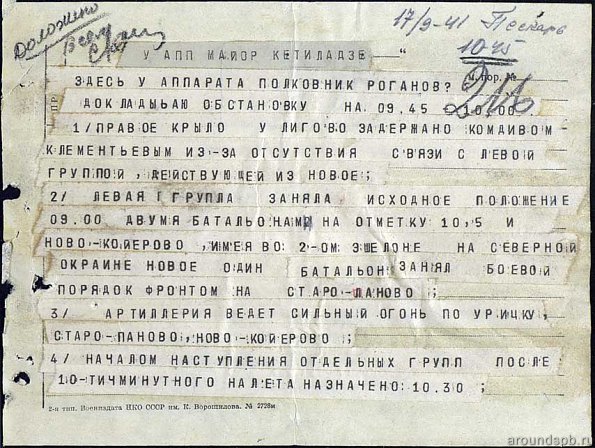 доложено
17/9-41
1045
У АПП МАЙОР КЕТИЛАДЗЕ "
ЗДЕСЬ У АППАРАТА ПОЛКОВНИК РОГАНОВ?
ДОКЛАДЫЬАЮ ОБСТАНОВКУ НА 09.45 10.00
1/ПРАВОЕ КРЫЛО У ЛИГОВО ЗАДЕРЖАНО КОМДИВОМ
КЛЕМЕНТЬЕВЫМ ИЗ-ЗА ОТСУТСТВИЯ СВЯЗИ С ЛЕВОЙ
ГРУППОЙ, ДЕЙСТВУЮЩЕЙ ИЗ НОВОЕ;
2/ ЛЕВАЯ ГГРУПЛА ЗАНЯЛА ИСХОДНОЕ ПОЛОЖЕНИЕ
09.00 ДВУМЯ БАТАЛЬОНАМИ НА ОТМЕТКУ 10,5 И
НОВО-КОЙЕРОВО ,ИМЕЯ ВО 2-ОМ ЭШЕЛОНЕ НА СЕВЕРНОЙ
ОКРАИНЕ НОВОЕ ОДИН БАТАЛЬОН ЗАНЯЛ БОЕВОЙ
ПОРЯДОК ФРОНТОМ НА СТАРО-ПАНОВО;
3/ АРТИЛЛЕРИЯ ВЕДЕТ СИЛЬНЫЙ ОГОНЬ ПО УРИЧКУ,
СТАРО-ПАНОВО,НОВО-КОЙЕРОВО;
4/ НАЧАЛОМ НАСТУПЛЕНИЯ ОТДЕЛЬНЫХ ГРУПП ПОСЛЕ
10-ТИЧМИНУТНОГО НАЛЕТА НАЗНАЧЕНО:10.30;
2-я тип. Воениздата НКО СССР им. К. Ворошилова. № 2728м
aroundspb.ru